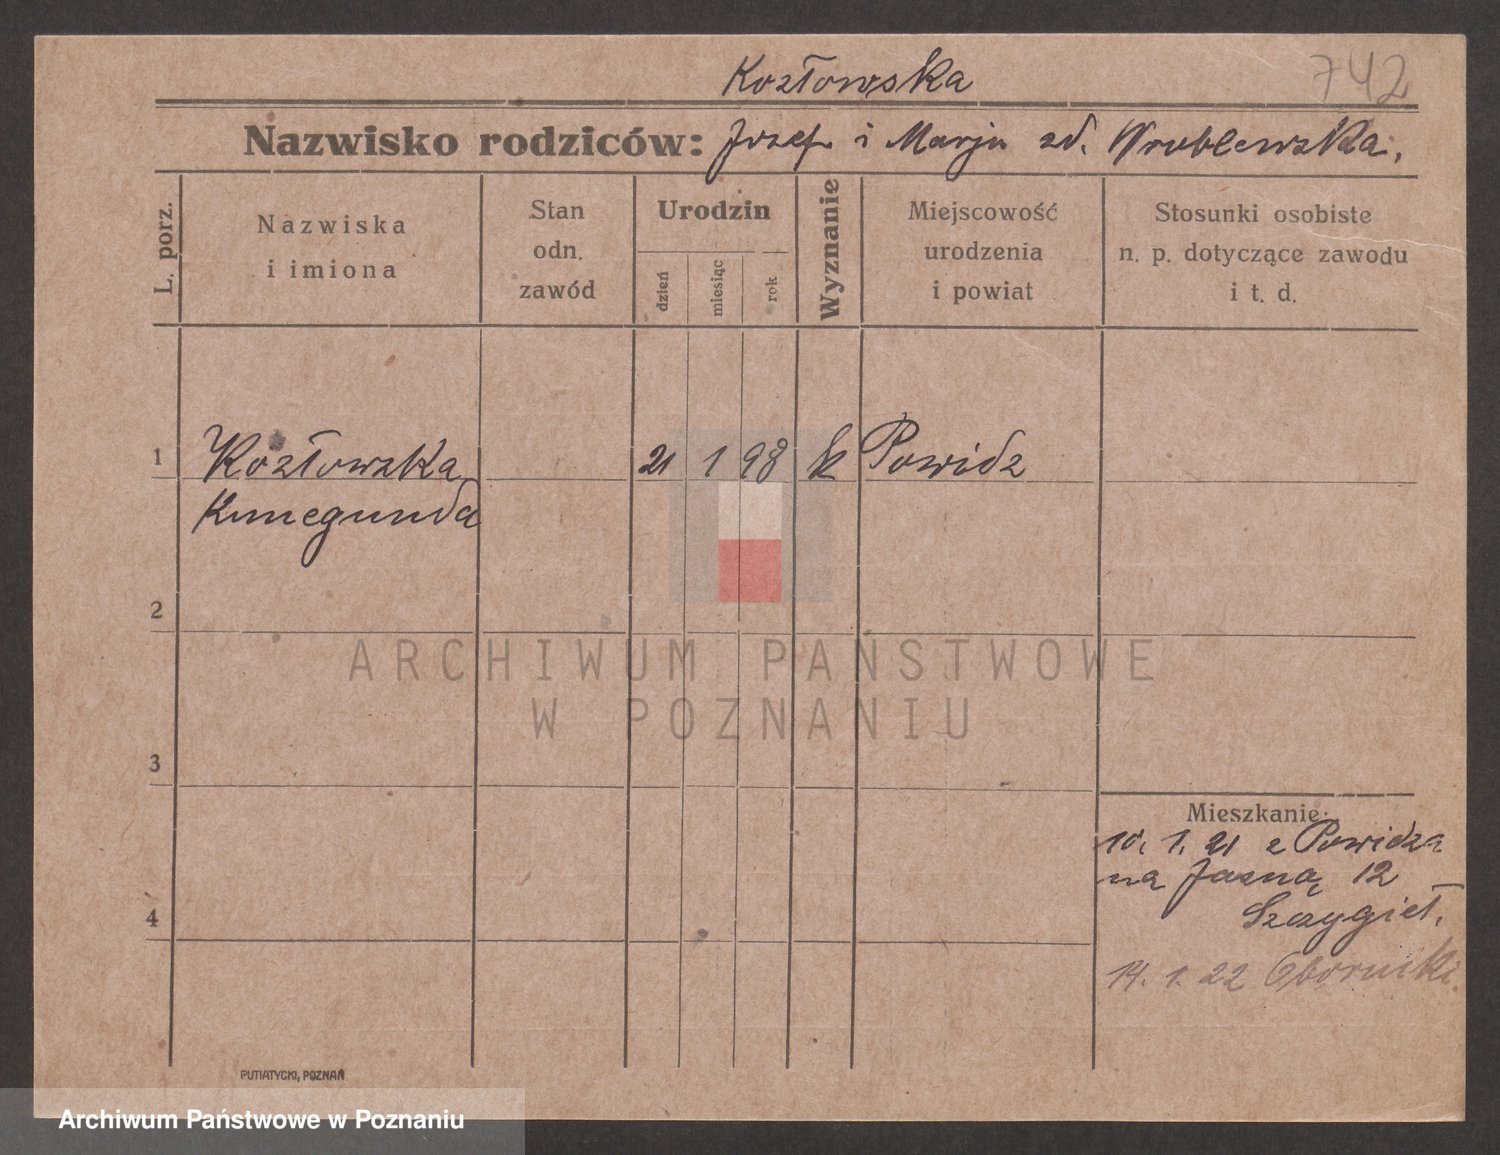 Kozłowska
742
Nazwisko rodziców: Jozef i Marja zd. Wroblewska.
L. porz.
Nazwiska
i imiona
Stan
odn.
zawód
Urodzin
dzień
miesiąc
rok
Wyznanie
Miejscowość
urodzenia
i powiat
Stosunki osobiste
n. p. dotyczące zawodu
i t. d.
1 Kozłowska 21 1 98 k Powidz
Kunegunda
2
3
4
Mieszkanie:
10. 1. 21 z Powidza
na Jasną 12
Szczygieł.
14. 1. 22 Oborniki.
PUTIATYCKI, POZNAŃ
ARCHIWUM PAŃSTWOWE
W POZNANIU
Archiwum Państwowe w Poznaniu